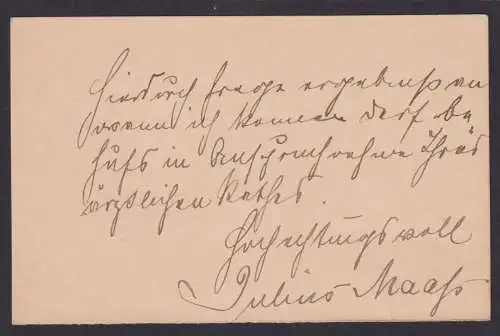 Hierdurch frage ergebenst an
wann ich kommen darf be-
hufs in Anspruchnahme Ihres
ärztlichen Rathes.
Hochachtungsvoll
Julius Maass